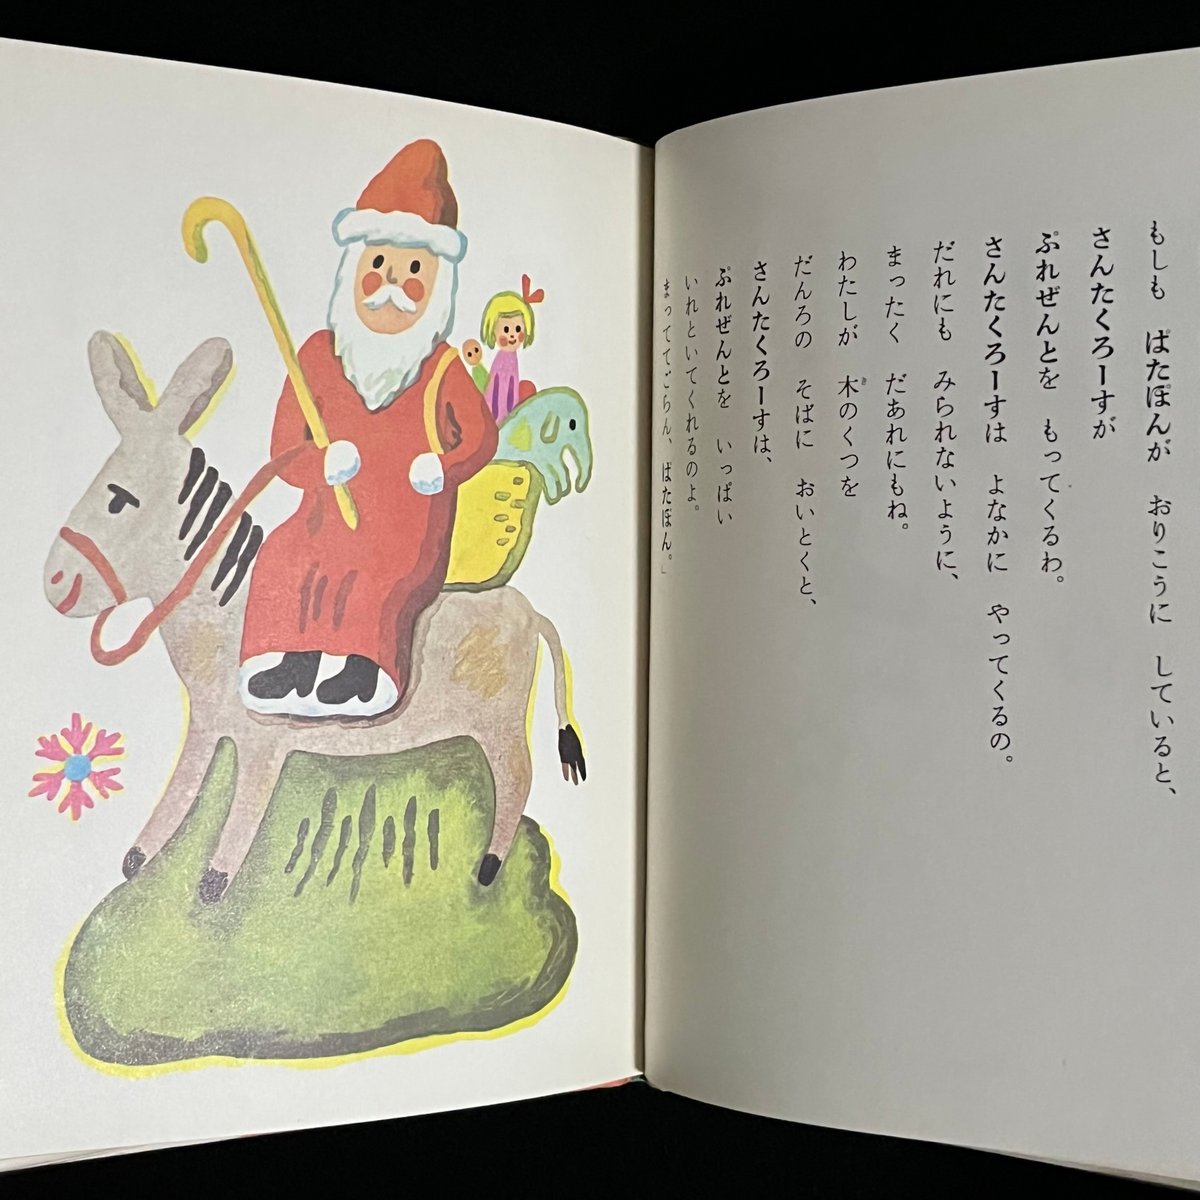 もしも ぱたぽんが おりこうに していると、
さんたくろーすが
ぷれぜんとを もってくるわ。
さんたくろーすは よなかに やってくるの。
だれにも みられないように、
まったく だあれにもね。
わたしが 木のくつを
だんろの そばに おいとくと、
さんたくろーすは、
ぷれぜんとを いっぱい
いれといてくれるのよ。
まっててごらん、ぱたぽん。」